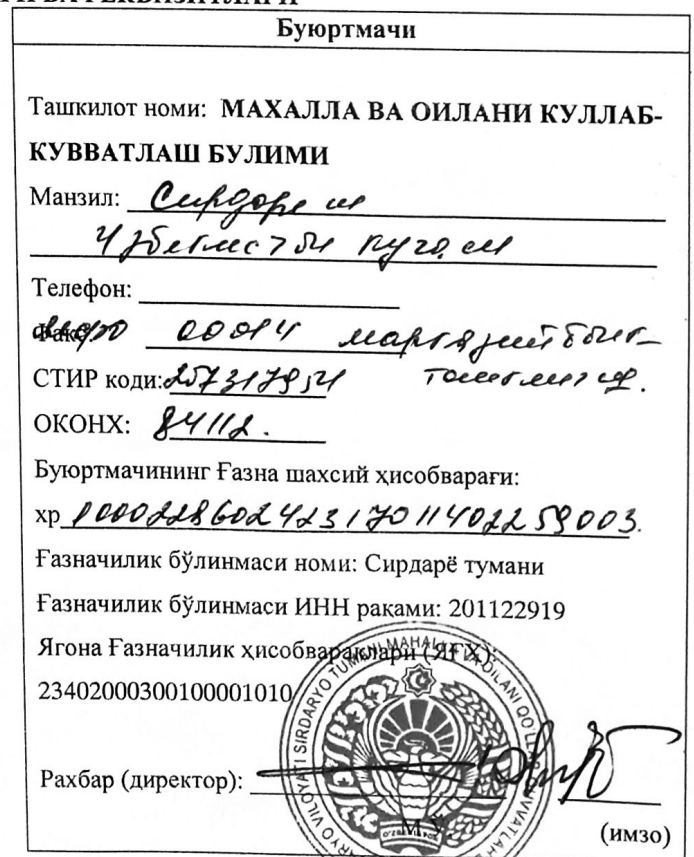 Буюртмачи
Ташкилот номи: МАХАЛЛА ВА ОИЛАНИ КУЛЛАБ-
КУВВАТЛАШ БУЛИМИ
Манзил: Сирдарё ш
Ўзбекистон куча
Телефон:
Факс 00014 марказий банк
СТИР коди:
ОКОНХ: 84112.
Буюртмачининг Ғазна шахсий ҳисобварағи:
хр 100022860242317011402259003.
Ғазначилик бўлинмаси номи: Сирдарё тумани
Ғазначилик бўлинмаси ИНН рақами: 201122919
Ягона Ғазначилик ҳисобварақлари (ЯҒҲ):
23402000300100001010
Рахбар (директор):
М.Ў.
(имзо)
SIRDARYO TUMANI MAHALLA VA OILANI QO'LLAB